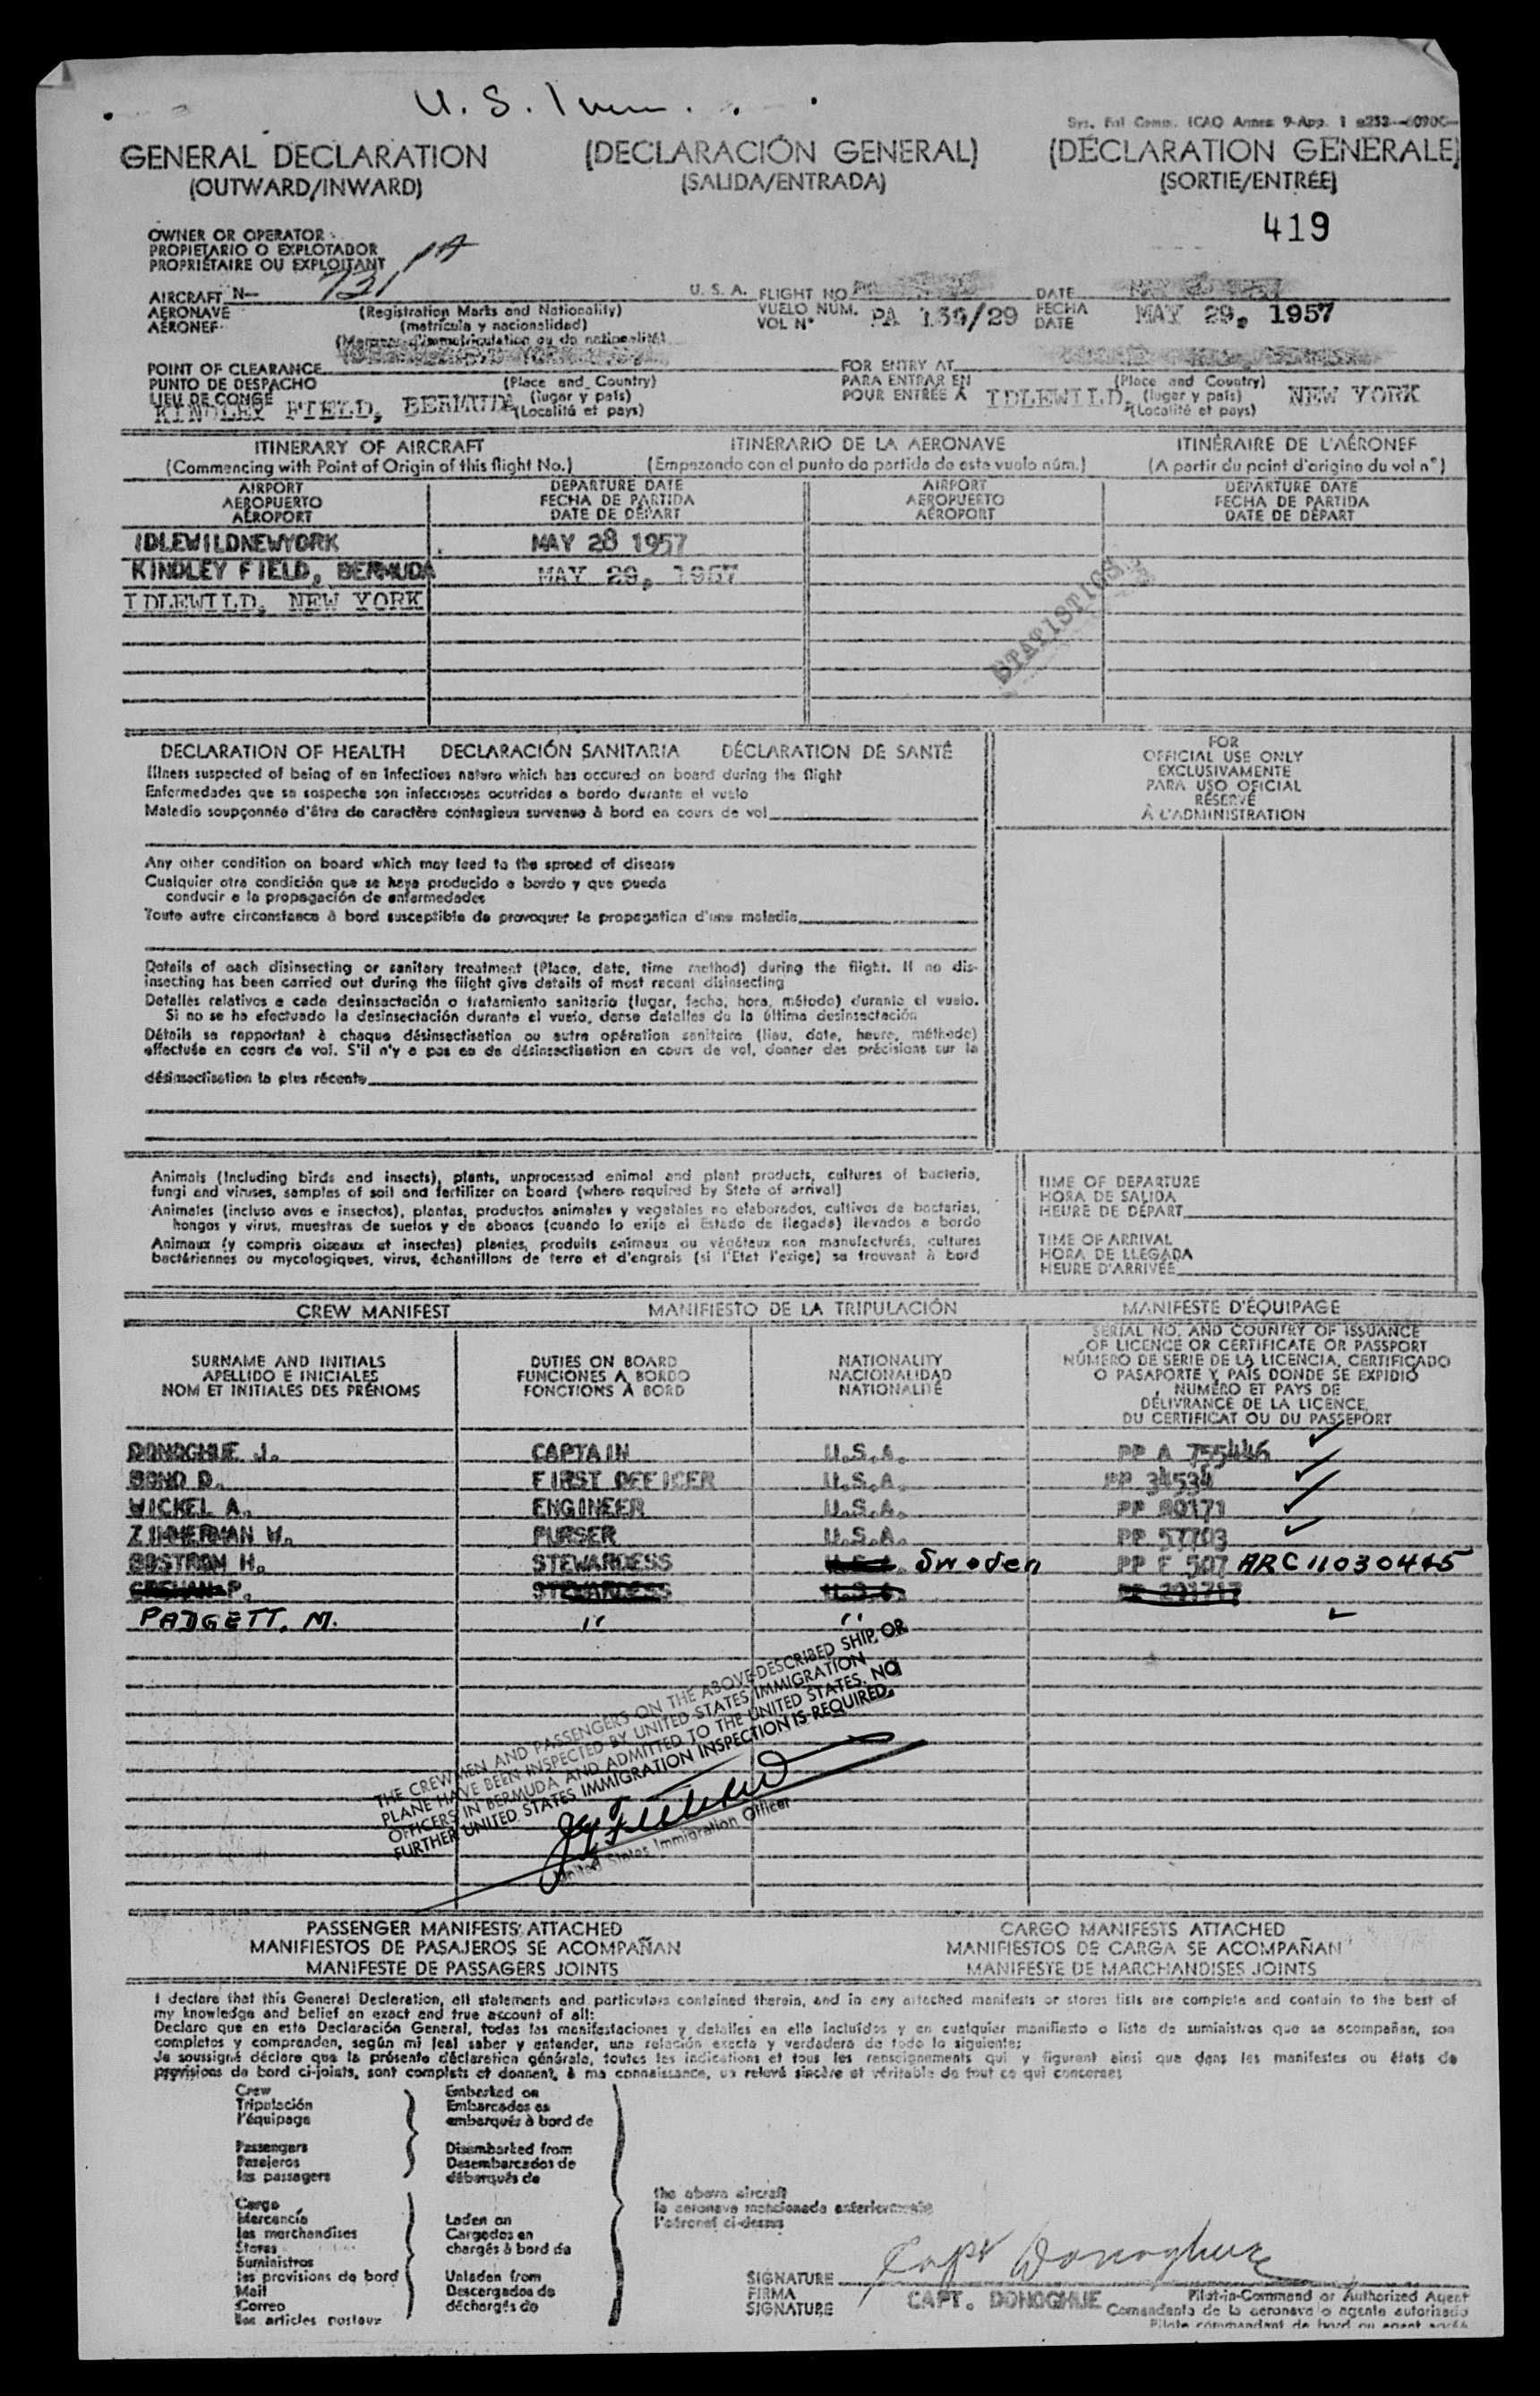 U. S. Imm.
GENERAL DECLARATION (DECLARACIÓN GENERAL) (DÉCLARATION GÉNÉRALE)
(OUTWARD/INWARD) (SALIDA/ENTRADA) (SORTIE/ENTRÉE)
419
OWNER OR OPERATOR
PROPIETARIO O EXPLOTADOR
PROPRIÉTAIRE OU EXPLOITANT
AIRCRAFT N- U. S. A. FLIGHT NO DATE
AERONAVE (Registration Marks and Nationality) VUELO NUM. FECHA
AÉRONEF (matrícula y nacionalidad) VOL N° PA 139/29 DATE MAY 29, 1957
POINT OF CLEARANCE FOR ENTRY AT
PUNTO DE DESPACHO (Place and Country) PARA ENTRAR EN (Place and Country)
LIEU DE CONGÉ (lugar y país) POUR ENTRÉE A (lugar y país)
KINDLEY FIELD, BERMUDA (Localité et pays) IDLEWILD, (Localité et pays) NEW YORK
ITINERARY OF AIRCRAFT ITINERARIO DE LA AERONAVE ITINÉRAIRE DE L'AÉRONEF
(Commencing with Point of Origin of this flight No.) (Empezando con el punto de partida de este vuelo núm.) (A partir du point d'origine du vol n°)
AIRPORT DEPARTURE DATE AIRPORT DEPARTURE DATE
AEROPUERTO FECHA DE PARTIDA AEROPUERTO FECHA DE PARTIDA
AÉROPORT DATE DE DÉPART AÉROPORT DATE DE DÉPART
IDLEWILDNEWYORK MAY 28 1957
KINDLEY FIELD, BERMUDA MAY 29, 1957
IDLEWILD, NEW YORK
STATISTICS
DECLARATION OF HEALTH DECLARACIÓN SANITARIA DÉCLARATION DE SANTÉ
Illness suspected of being of an infectious nature which has occured on board during the flight
Enfermedades que se sospeche son infecciosas ocurridas a bordo durante el vuelo
Maladie soupçonnée d'être de caractère contagieux survenue à bord en cours de vol
FOR
OFFICIAL USE ONLY
EXCLUSIVAMENTE
PARA USO OFICIAL
RÉSERVÉ
À L'ADMINISTRATION
Any other condition on board which may lead to the spread of disease
Cualquier otra condición que se haya producido a bordo y que pueda
conducir a la propagación de enfermedades
Toute autre circonstance à bord susceptible de provoquer la propagation d'une maladie
Details of each disinsecting or sanitary treatment (Place, date, time method) during the flight. If no dis-
insecting has been carried out during the flight give details of most recent disinsecting
Detalles relativos a cada desinsectación o tratamiento sanitario (lugar, fecha, hora, método) durante el vuelo.
Si no se ha efectuado la desinsectación durante el vuelo, dense detalles de la última desinsectación
Détails se rapportant à chaque désinsectisation ou autre opération sanitaire (lieu, date, heure, méthode)
effectuée en cours de vol. S'il n'y a pas eu de désinsectisation en cours de vol, donner des précisions sur la
désinsectisation la plus récente
Animals (including birds and insects), plants, unprocessed animal and plant products, cultures of bacteria,
fungi and viruses, samples of soil and fertilizer on board (where required by State of arrival)
Animales (incluso aves e insectos), plantas, productos animales y vegetales no elaborados, cultivos de bacterias,
hongos y virus, muestras de suelos y de abonos (cuando lo exija el Estado de llegada) llevados a bordo
Animaux (y compris oiseaux et insectes) plantes, produits animaux ou végétaux non manufacturés, cultures
bactériennes ou mycologiques, virus, échantillons de terre et d'engrais (si l'Etat l'exige) se trouvant à bord
TIME OF DEPARTURE
HORA DE SALIDA
HEURE DE DÉPART
TIME OF ARRIVAL
HORA DE LLEGADA
HEURE D'ARRIVÉE
CREW MANIFEST MANIFIESTO DE LA TRIPULACIÓN MANIFESTE D'ÉQUIPAGE
SURNAME AND INITIALS
APELLIDO E INICIALES
NOM ET INITIALES DES PRÉNOMS
DUTIES ON BOARD
FUNCIONES A BORDO
FONCTIONS À BORD
NATIONALITY
NACIONALIDAD
NATIONALITÉ
SERIAL NO. AND COUNTRY OF ISSUANCE
OF LICENCE OR CERTIFICATE OR PASSPORT
NÚMERO DE SERIE DE LA LICENCIA, CERTIFICADO
O PASAPORTE Y PAÍS DONDE SE EXPIDIÓ
NUMÉRO ET PAYS DE
DÉLIVRANCE DE LA LICENCE,
DU CERTIFICAT OU DU PASSEPORT
DONOGHUE J. CAPTAIN U.S.A. PP A 755446
BOND D. FIRST OFFICER U.S.A. PP 34534
WICKEL A. ENGINEER U.S.A. PP 80171
ZIMMERMAN W. PURSER U.S.A. PP 57703
BOSTROM H. STEWARDESS Sweden PP F 507 ARC 11030445
P. STEWARDESS U.S.A.
PADGETT, M. " "
THE CREWMEN AND PASSENGERS ON THE ABOVE-DESCRIBED SHIP OR
PLANE HAVE BEEN INSPECTED BY UNITED STATES IMMIGRATION
OFFICERS IN BERMUDA AND ADMITTED TO THE UNITED STATES. NO
FURTHER UNITED STATES IMMIGRATION INSPECTION IS REQUIRED.
United States Immigration Officer
PASSENGER MANIFESTS ATTACHED CARGO MANIFESTS ATTACHED
MANIFIESTOS DE PASAJEROS SE ACOMPAÑAN MANIFIESTOS DE CARGA SE ACOMPAÑAN
MANIFESTE DE PASSAGERS JOINTS MANIFESTE DE MARCHANDISES JOINTS
I declare that this General Declaration, all statements and particulars contained therein, and in any attached manifests or stores lists are complete and contain to the best of
my knowledge and belief an exact and true account of all:
Declaro que en esta Declaración General, todas las manifestaciones y detalles en ella incluídos y en cualquier manifiesto o lista de suministros que se acompañan, son
completos y comprenden, según mi leal saber y entender, una relación exacta y verdadera de todo lo siguiente:
Je soussigné déclare que la présente déclaration générale, toutes les indications et tous les renseignements qui y figurent ainsi que dans les manifestes ou états de
provisions de bord ci-joints, sont complets et donnent, à ma connaissance, un relevé sincère et véritable de tout ce qui concerne:
Crew Embarked on
Tripulación Embarcados en
l'équipage embarqués à bord de
Passengers Disembarked from
Pasajeros Desembarcados de
les passagers débarqués de
the above aircraft
la aeronave mencionada anteriormente
l'aéronef ci-dessus
Cargo
Mercancía Laden on
les marchandises Cargados en
Stores chargés à bord de
Suministros
les provisions de bord Unladen from
Mail Descargados de
Correo déchargés de
les articles postaux
SIGNATURE Capt Donoghue
FIRMA CAPT. DONOGHUE Pilot-in-Command or Authorized Agent
SIGNATURE Comandante de la aeronave o agente autorizado
Pilote commandant de bord ou agent agréé